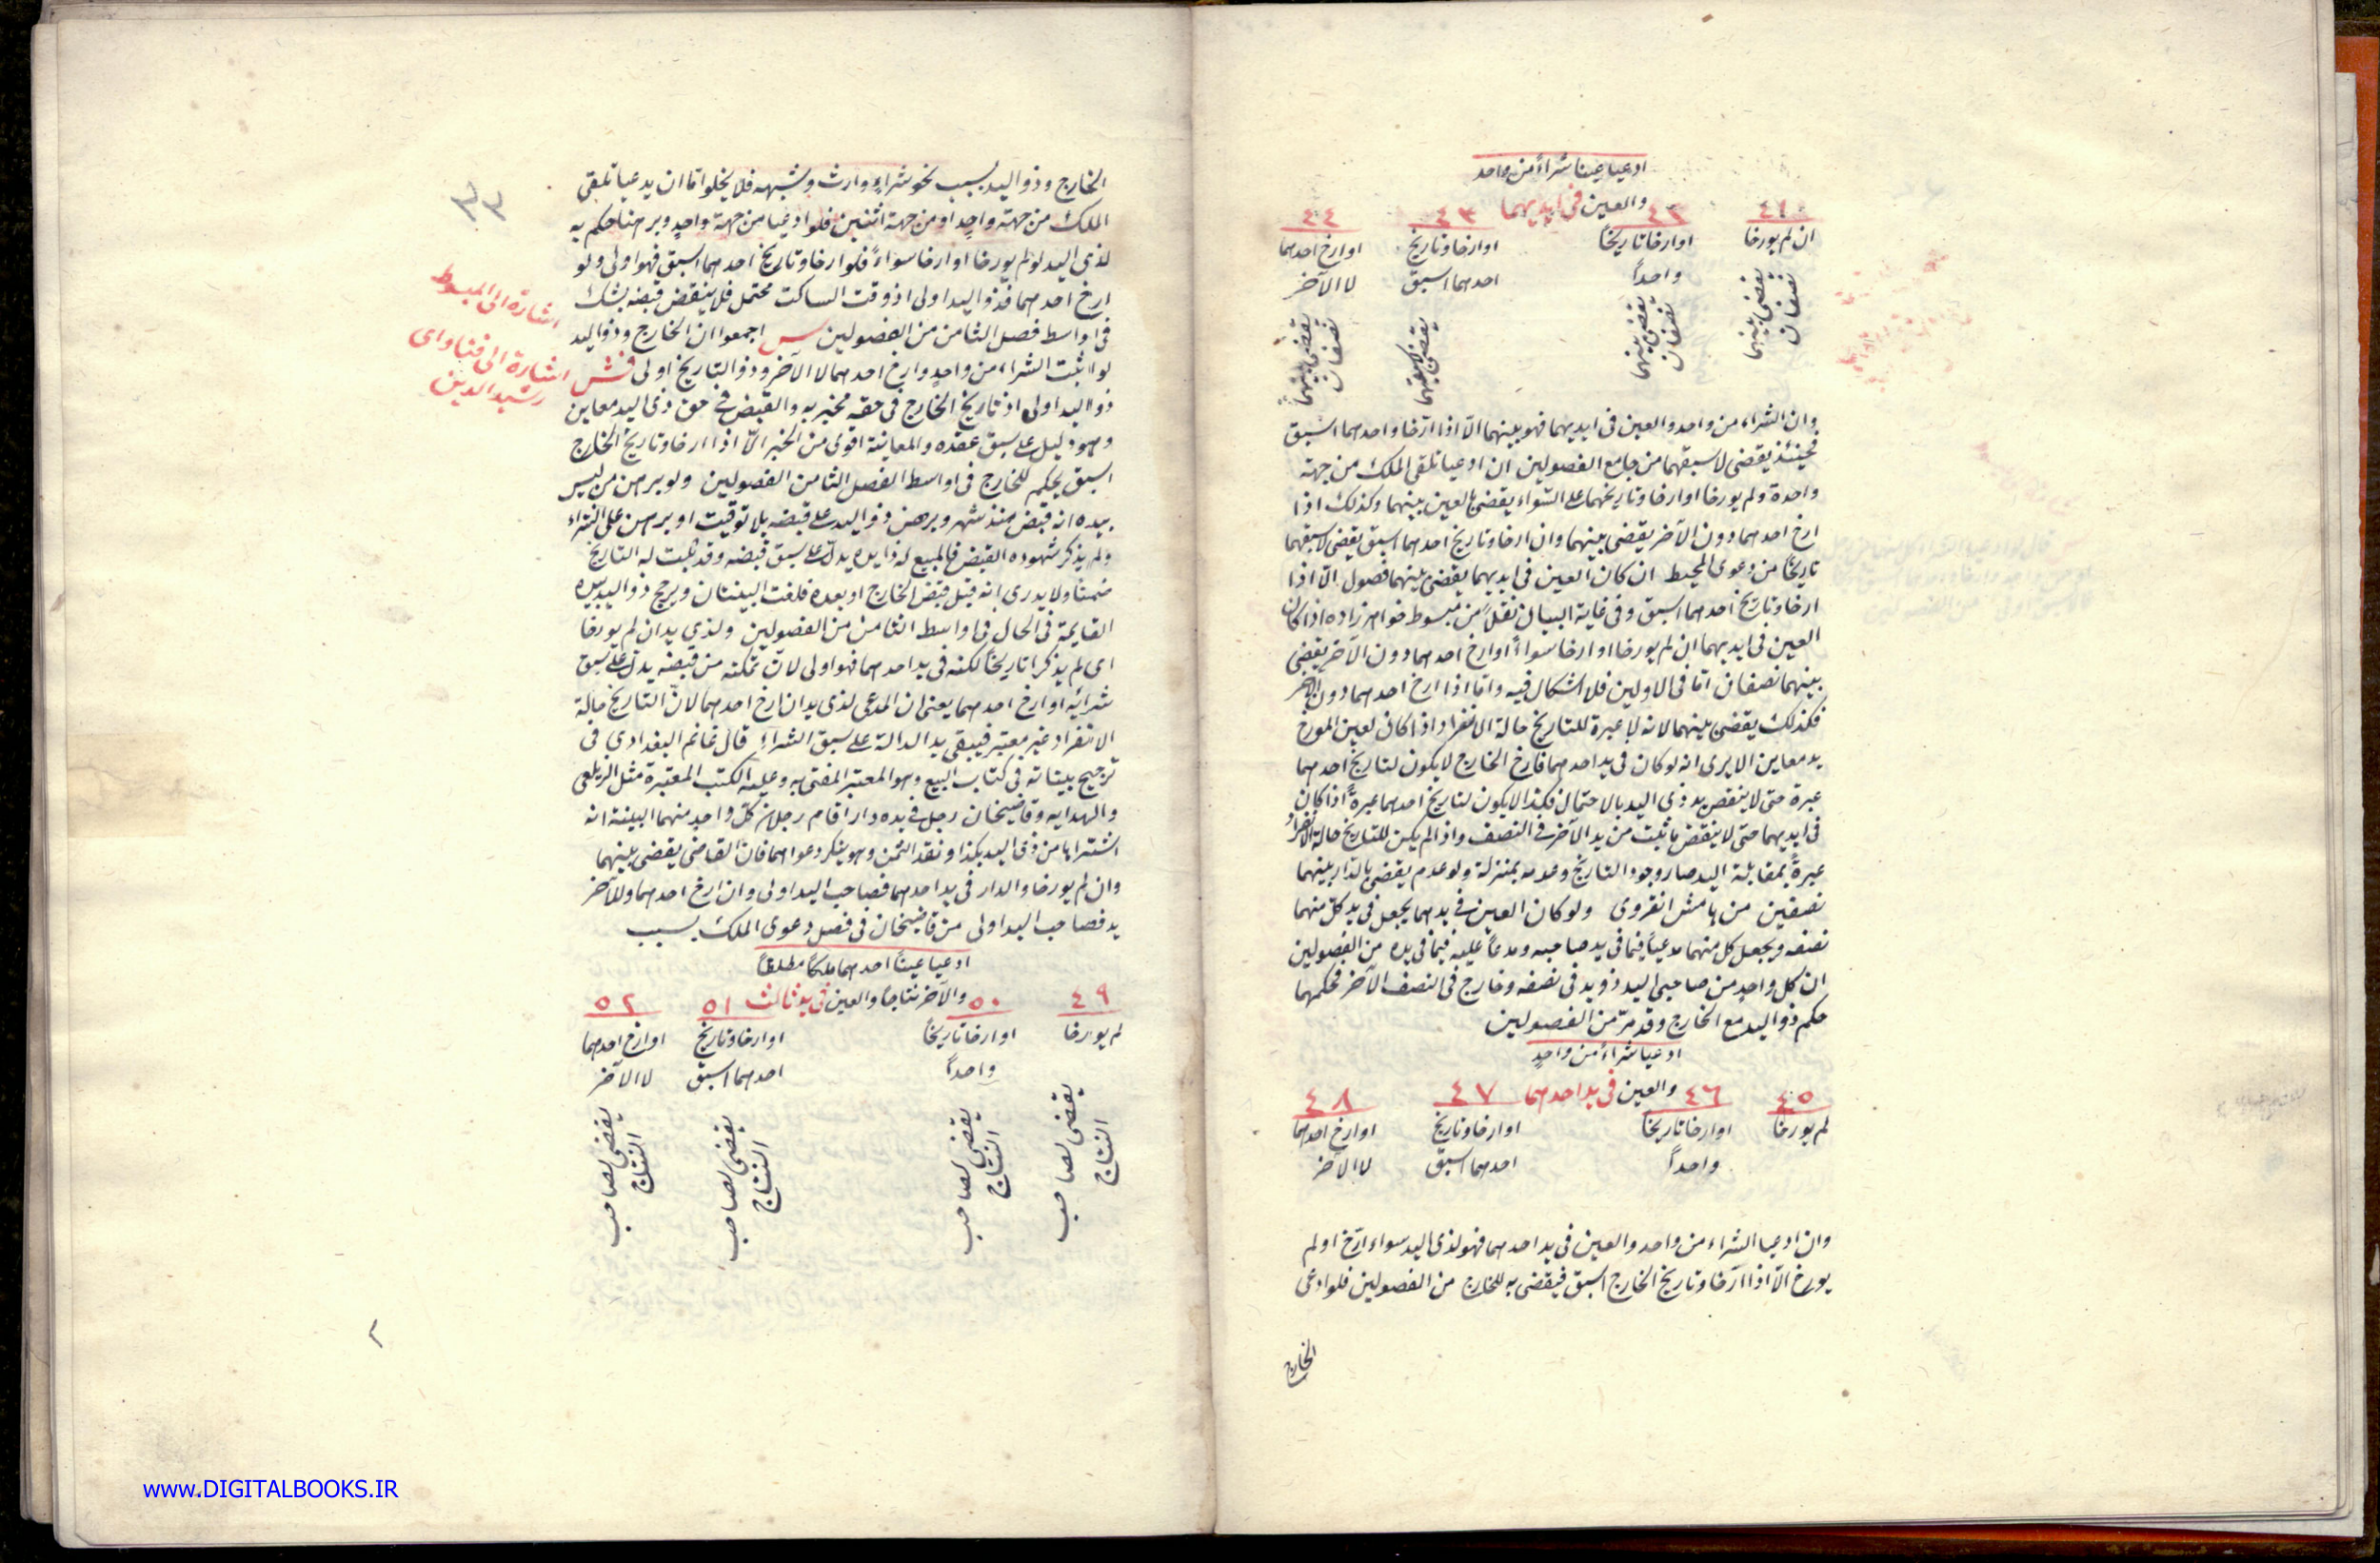 ادعيا عينا شراءً من واحد
والعين في ايديهما
٤١ ٤٢ ٤٣ ٤٤
ان لم يورخا
يقضى بينهما
نصفان
او ارخا تاريخًا
واحداً
يقضى بينهما
نصفان
او ارخا وتاريخ
احدهما اسبق
يقضى لاسبقهما
او ارخ احدهما
لا الآخر
يقضى بينهما
نصفان
وان الشراء من واحد والعين في ايديهما فهو بينهما الّا اذا ارّخا واحدهما اسبق
فحينئذ يقضى لاسبقهما من جامع الفصولين ان ادعيا تلقى الملك من جهة
واحدة ولم يورخا او ارخا وتاريخهما على السّواء يقضى بالعين بينهما وكذلك اذا
ارخ احدهما دون الآخر يقضى بينهما وان ارخا وتاريخ احدهما اسبق يقضى لاسبقهما
تاريخًا من دعوى المحيط ان كان العين في ايديهما يقضى بينهما فصول الّا اذا
ارخا وتاريخ احدهما اسبق وفي غاية البيان نقلًا من مبسوط خواهر زاده اذا كان
العين في ايديهما ان لم يورخا او ارخا سواءً او ارخ احدهما دون الآخر يقضى
بينهما نصفان امّا في الاولين فلا اشكال فيه وامّا اذا ارخ احدهما دون الآخر
فكذلك يقضى بينهما لانه لا عبرة للتاريخ حالة الانفراد اذا كان لعين المورخ
يد معاين الا يرى انه لو كان في يد احدهما فارخ الخارج لا يكون لتاريخ احدهما
عبرة حتى لا ينقض يد ذي اليد بالاحتمال فكذا لا يكون لتاريخ احدهما عبرةً اذا كان
في ايديهما حتى لا ينقض ما ثبت من يد الآخر في النصف واذا لم يكن للتاريخ حالة الانفراد
عبرةً بمقابلة اليد صار وجود التاريخ وعدمه بمنزلة ولو عدم يقضى بالدار بينهما
نصفين من هامش انقروى ولو كان العين في يدهما يجعل في يد كلّ منهما
نصفه ويجعل كل منهما مدعياً فيما في يد صاحبه ومدعاً عليه فيما في يده من الفصولين
ان كل واحدٍ من صاحبى اليد ذو يد في نصفه وخارج في النصف الآخر فحكمهما
حكم ذو اليد مع الخارج وقد مرّ من الفصولين
ادعيا شراءً من واحدٍ
والعين في يد احدهما
٤٥ ٤٦ ٤٧ ٤٨
لم يورخا
او ارخا تاريخًا
واحداً
او ارخا وتاريخ
احدهما اسبق
او ارخ احدهما
لا الآخر
وان ادعيا الشراء من واحد والعين في يد احدهما فهو لذى اليد سواء ارّخ او لم
يورخ الّا اذا ارّخا وتاريخ الخارج اسبق فيقضى به للخارج من الفصولين فلو ادعى
الخارج
٣٣
الخارج وذو اليد بسبب نحو شراءٍ وارث وشبهه فلا يخلوا امّا ان يدعيا تلقى
الملك من جهة واحدٍ او من جهة اثنين فلو ادعيا من جهة واحدٍ وبرهنا حكم به
لذى اليد لو لم يورخا او ارخا سواءً فلو ارخا وتاريخ احدهما اسبق فهو اولى ولو
ارخ احدهما فذو اليد اولى اذ وقت الساكت محتمل فلا ينقض قبضه بشك
في اواسط فصل الثامن من الفصولين س اجمعوا ان الخارج وذو اليد
لو اثبت الشراء من واحدٍ وارخ احدهما لا الآخر وذو التاريخ اولى فش
ذو اليد اولى اذ تاريخ الخارج في حقه مخبر به والقبض في حق ذى اليد معاين
وهو دليل على سبق عقده والمعاينة اقوى من الخبر الّا اذا ارخا وتاريخ الخارج
اسبق يحكم للخارج في اواسط الفصل الثامن الفصولين ولو برهن من ليس
بيده انه قبض منذ شهر وبرهن ذو اليد على قبضه بلا توقيت او برهن على الشراء
ولم يذكر شهوده القبض فالمبيع لذا يده يدل على سبق قبضه وقد ثبت له التاريخ
ضمنًا ولا يدرى انه قبل قبض الخارج او بعده فلغت البينتان ويرجح ذو اليد بيده
القايمة في الحال في اواسط الثامن من الفصولين ولذي يد ان لم يورخا
اى لم يذكرا تاريخًا لكنه في يد احدهما فهو اولى لانّ تمكنه من قبضه يدل على سبق
شرائه او ارخ احدهما يعنى ان المدعى لذى يد ان ارخ احدهما لانّ التاريخ حالة
الانفراد غير معتبر فيبقى يد الدالة على سبق الشراء قال غانم البغدادي في
ترجيح بيناته في كتاب البيع وهو المعتبر المفتى به وعليه الكتب المعتبرة مثل الزيلعى
والهدايه وقاضيخان رجل في يده دار اقام رجلان كل واحد منهما البينة انه
اشتراها من ذى اليد بكذا ونقد الثمن وهو ينكر دعواهما فان القاضى يقضى بينهما
وان لم يورخا والدار في يد احدهما فصاحب اليد اولى وان ارخ احدهما وللآخر
يد فصاحب اليد اولى من قاضيخان في فصل دعوى الملك بسبب
اشارة الى المبسوط
اشارة الى فتاواى
رشيد الدين
ادعيا عيناً احدهما ملكاً مطلقاً
والآخر نتاجاً والعين في يد ثالث
٤٩ ٥٠ ٥١ ٥٢
لم يورخا
يقضى لصاحب
النتاج
او ارخا تاريخاً
واحداً
يقضى لصاحب
النتاج
او ارخا وتاريخ
احدهما اسبق
يقضى لصاحب
النتاج
او ارخ احدهما
لا الآخر
يقضى لصاحب
النتاج
www.DIGITALBOOKS.IR